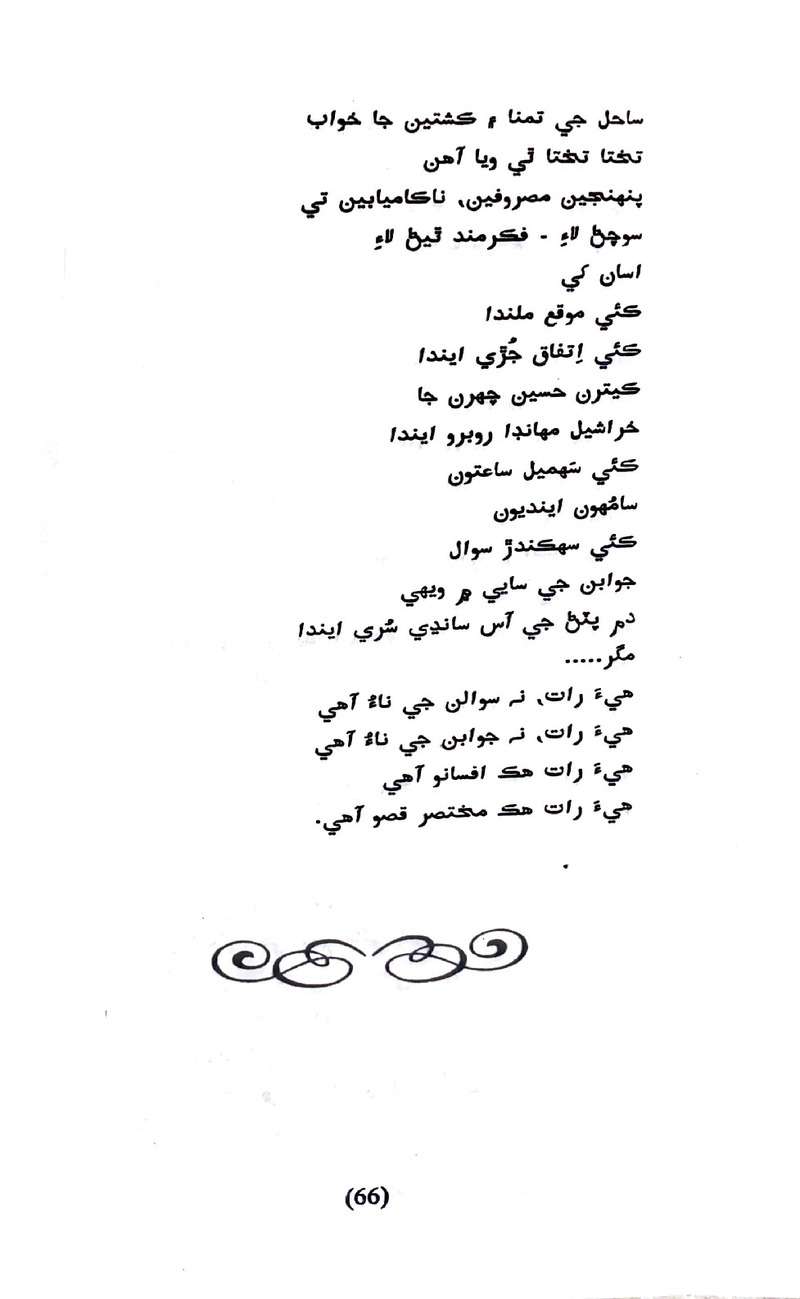 ساحل جي تمنا ۽ ڪشتين جا خواب
تختا تختا ٿي ويا آهن
پنهنجين مصروفين، ناڪاميابين تي
سوچڻ لاءِ - فڪرمند ٿيڻ لاءِ
اسان کي
ڪئي موقع ملندا
ڪئي اِتفاق جُڙي ايندا
ڪيترن حسين چهرن جا
خراشيل مهانڊا روبرو ايندا
ڪئي سَهميل ساعتون
سامُهون اينديون
ڪئي سهڪندڙ سوال
جوابن جي سايي ۾ ويهي
دم پٽڻ جي آس سانڍي سُري ايندا
مگر.....
هيءَ رات، نہ سوالن جي ناءُ آهي
هيءَ رات، نہ جوابن جي ناءُ آهي
هيءَ رات هڪ افسانو آهي
هيءَ رات هڪ مختصر قصو آهي.
(66)